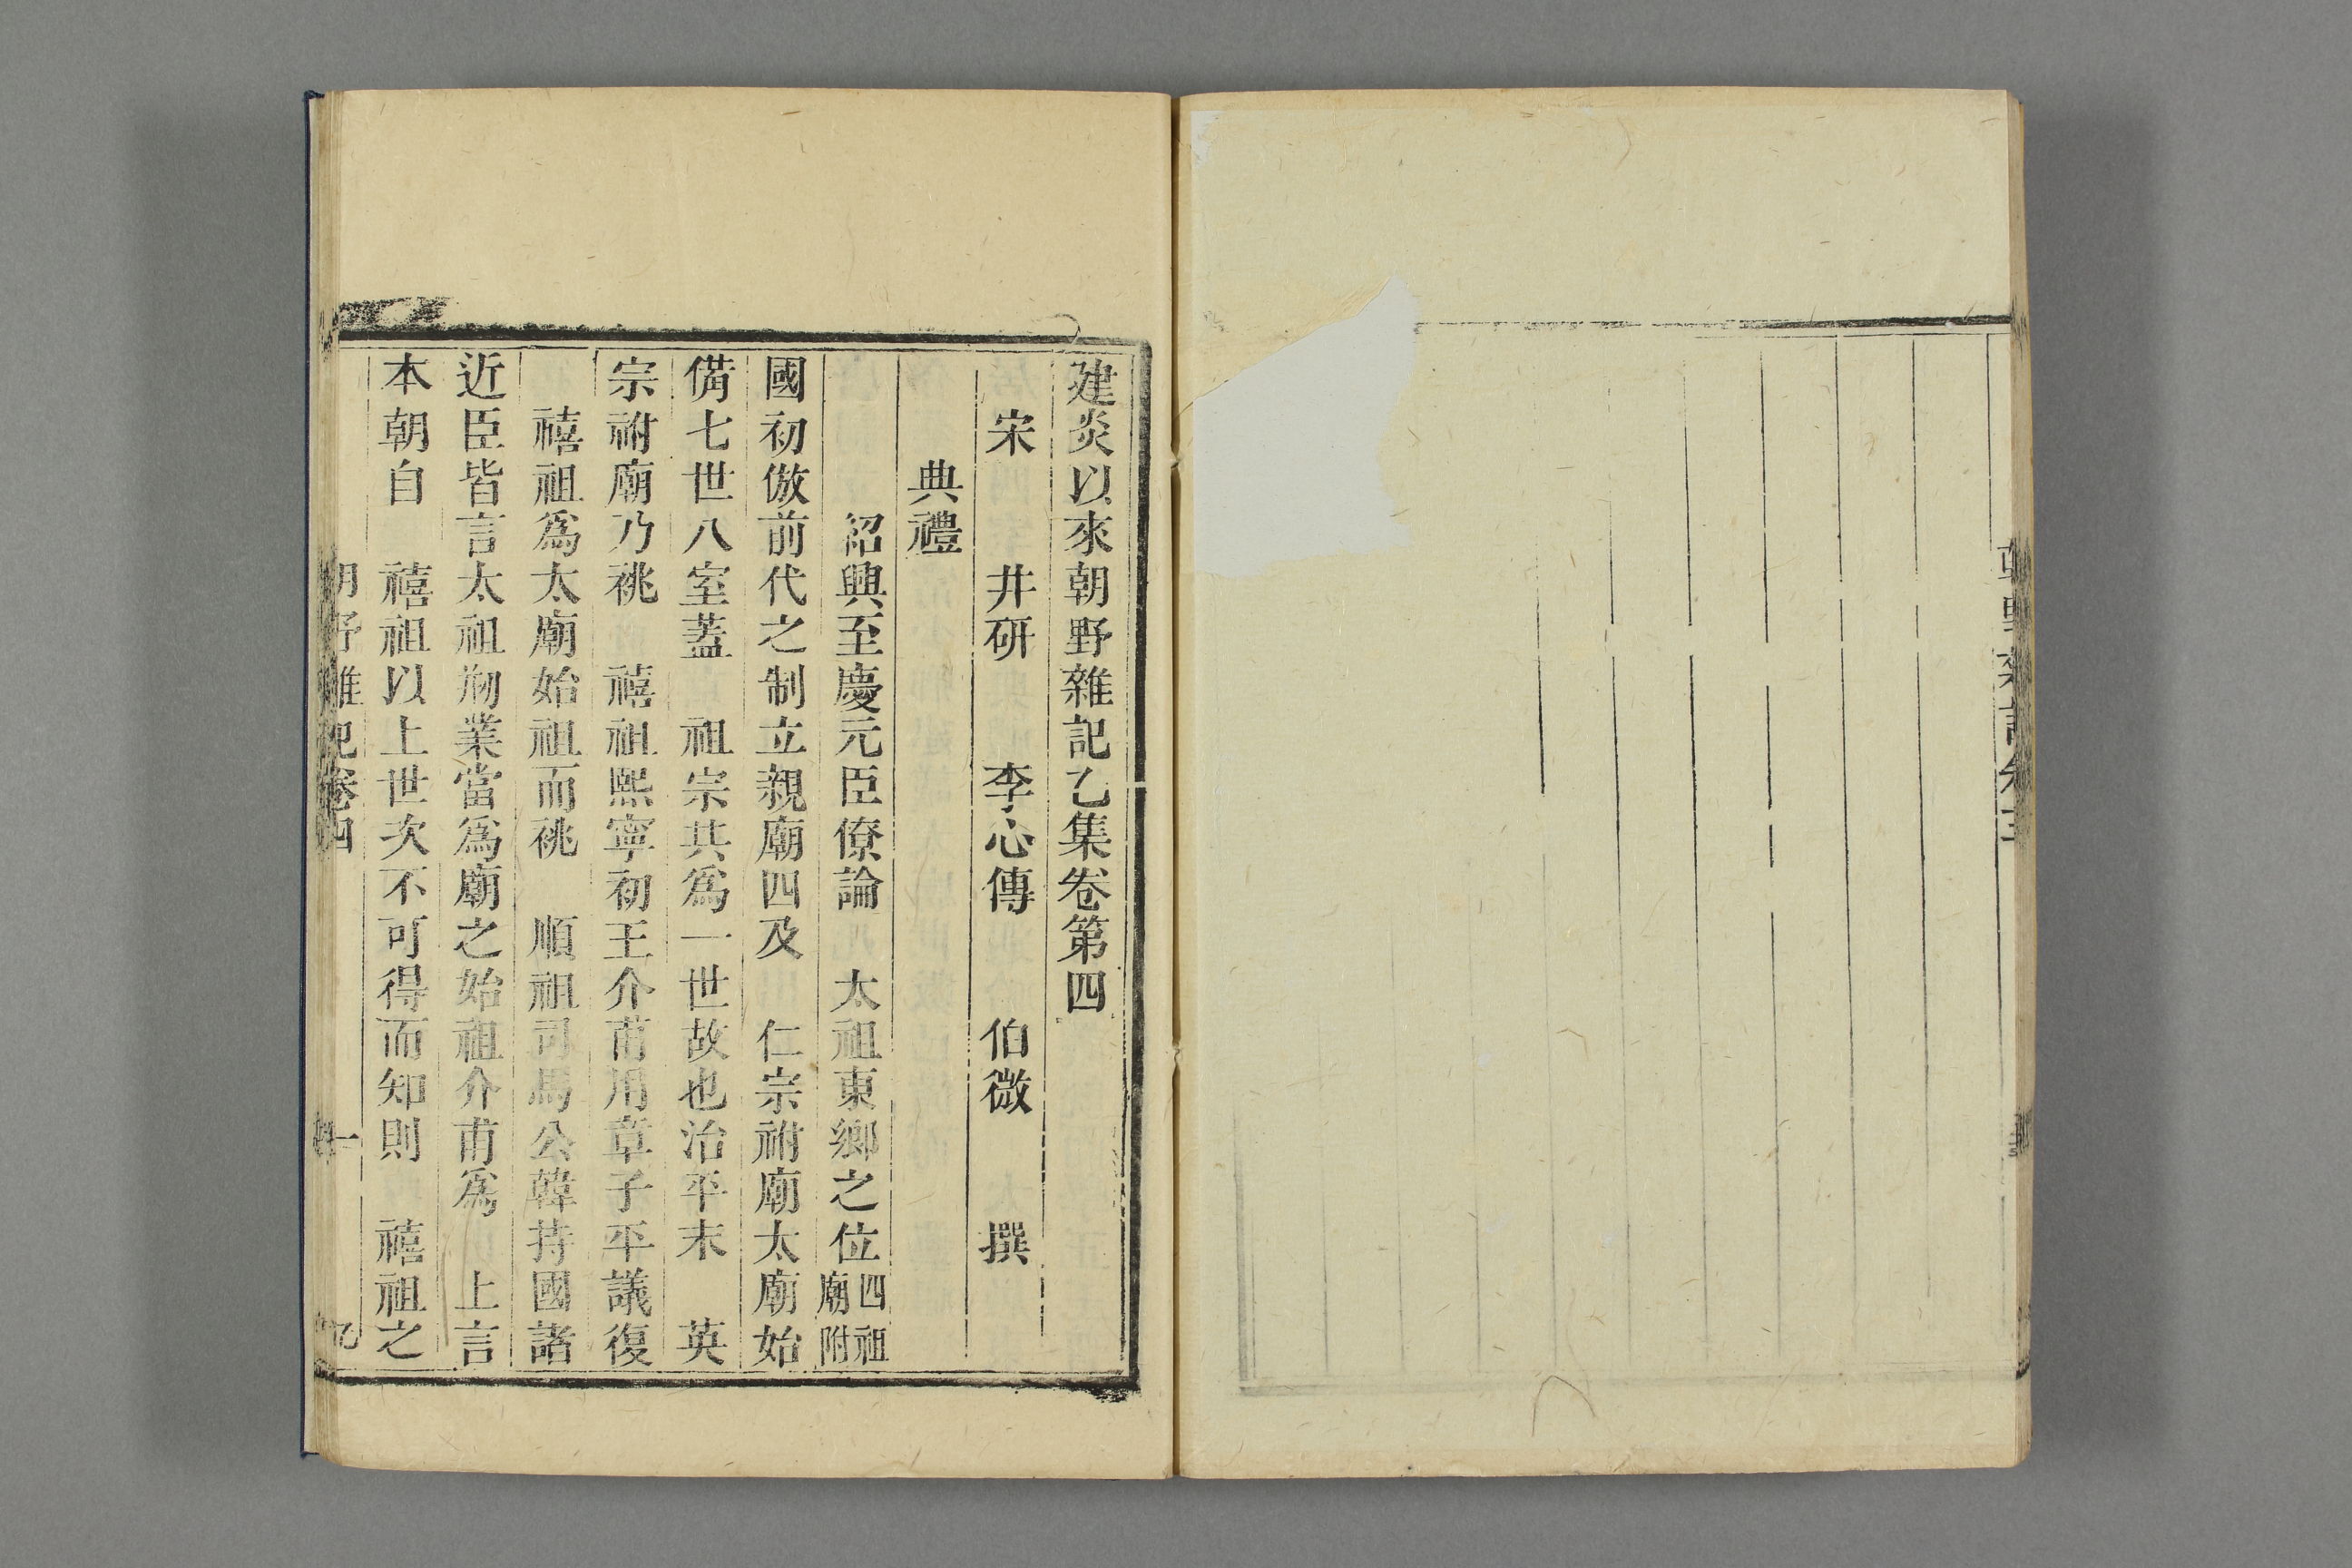 建炎以來朝野雜記乙集卷第四
宋 井研 李心傳 伯微 撰
典禮
紹興至慶元臣僚論 太祖東鄉之位四祖廟附
國初倣前代之制立親廟四及 仁宗祔廟太廟始
僃七世八室蓋 祖宗共爲一世故也治平末 英
宗祔廟乃祧 禧祖熙寧初王介甫用章子平議復
禧祖爲太廟始祖而祧 順祖司馬公韓持國諸
近臣皆言太祖剏業當爲廟之始祖介甫爲 上言
本朝自 禧祖以上世次不可得而知則 禧祖之
朝野雜記卷四 一